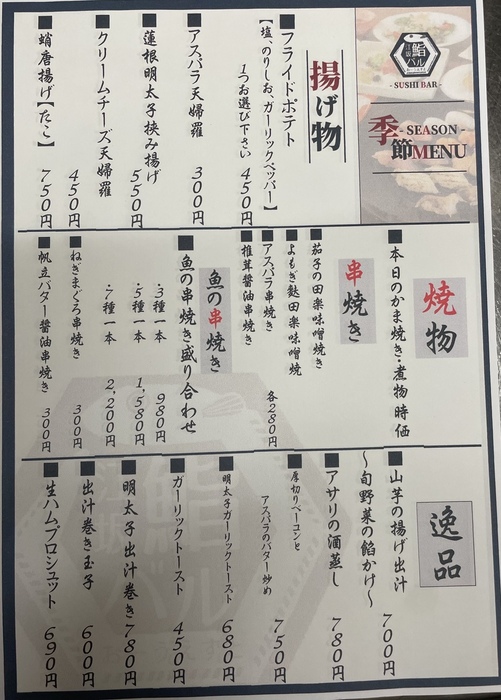 鮨
バル
- SUSHI BAR -
季節
- SEASON -
MENU
揚げ物
■フライドポテト
【塩、のりしお、ガーリックペッパー】
1つお選び下さい 450円
■アスパラ天婦羅 300円
■蓮根明太子挟み揚げ 550円
■クリームチーズ天婦羅 450円
■蛸唐揚げ【たこ】 750円
焼物
■本日のかま焼き・煮物 時価
串焼き
■茄子の田楽味噌焼き
■よもぎ麩田楽味噌焼
■アスパラ串焼き 各280円
■椎茸醤油串焼き
魚の串焼き
■魚の串焼き盛り合わせ
・3種一本 980円
・5種一本 1,580円
・7種一本 2,200円
■ねぎまぐろ串焼き 300円
■帆立バター醤油串焼き 300円
逸品
■山芋の揚げ出汁
～旬野菜の餡かけ～ 700円
■アサリの酒蒸し 780円
■厚切りベーコンと
アスパラのバター炒め 750円
■明太子ガーリックトースト 680円
■ガーリックトースト 450円
■明太子出汁巻き 780円
■出汁巻き玉子 600円
■生ハムプロシュット 690円